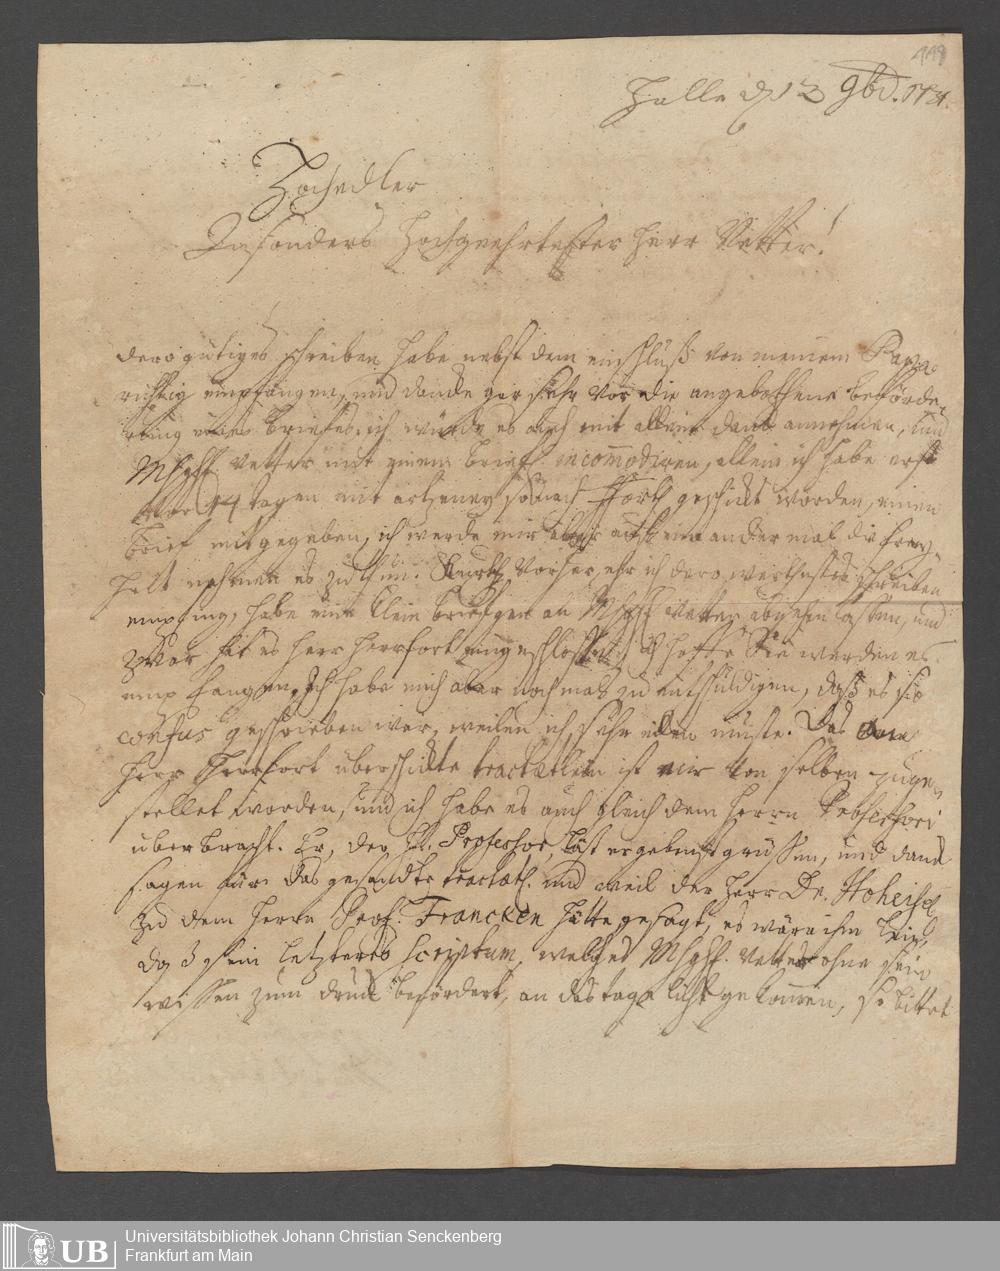 119
Halle d 12 9br. 1731.
Hochedler
Insonders Hochgeehrtester Herr Vetter!
dero gütiges schreiben habe nebst dem einschluß von meinem Papa
richtig empfangen, und dancke gar sehr vor die angebothene beförde-
rung eines briefes. ich würde es auch mit allem danck annehmen, und
MhgH. Vetter mit einem brief incomodiren, allein ich habe erst
vor 14 tagen mit artzeney so nach geschickt worden, einen
brief mitgegeben, ich werde mir aber auff ein ander mal die frey-
heit nehmen es zu thun. Kurtz vorher, ehr ich dero werthestes schreiben
empfing, habe ein klein briefgen an MhgH Vetter abgehen lassen, und
zwar hat es Herr Herrfort eingeschlossen, ich hoffe Sie werden es
empfangen. Ich habe mich aber nochmals zu entschuldigen, daß es so
confus geschrieben war, weilen ich sehr eilen muste. Das
Herr Herrfort überschickte tractætlein ist mir von selben zuge-
stellet worden, und ich habe es auch gleich dem Herrn Professori
überbracht. Er, der H. Professor, läst ergebenst grüssen, und danck
sagen für das gesandte tractætl. und weil der Herr Dr. Hoheisel
zu dem Herrn Prof. Francken hätte gesagt, es wäre ihm leid,
daß sein letzteres scriptum, welches MhgH. Vetter ohne sein
wissen zum druck befördert, an das tage licht gekommen, so bittet
UB
Universitätsbibliothek Johann Christian Senckenberg
Frankfurt am Main